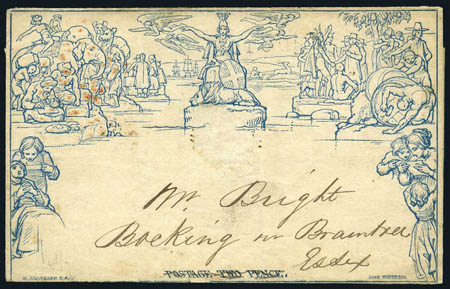 Mr Bright
Bocking nr Braintree
Essex
POSTAGE TWO PENCE.
W. MULREADY. R.A.
JOHN THOMPSON.